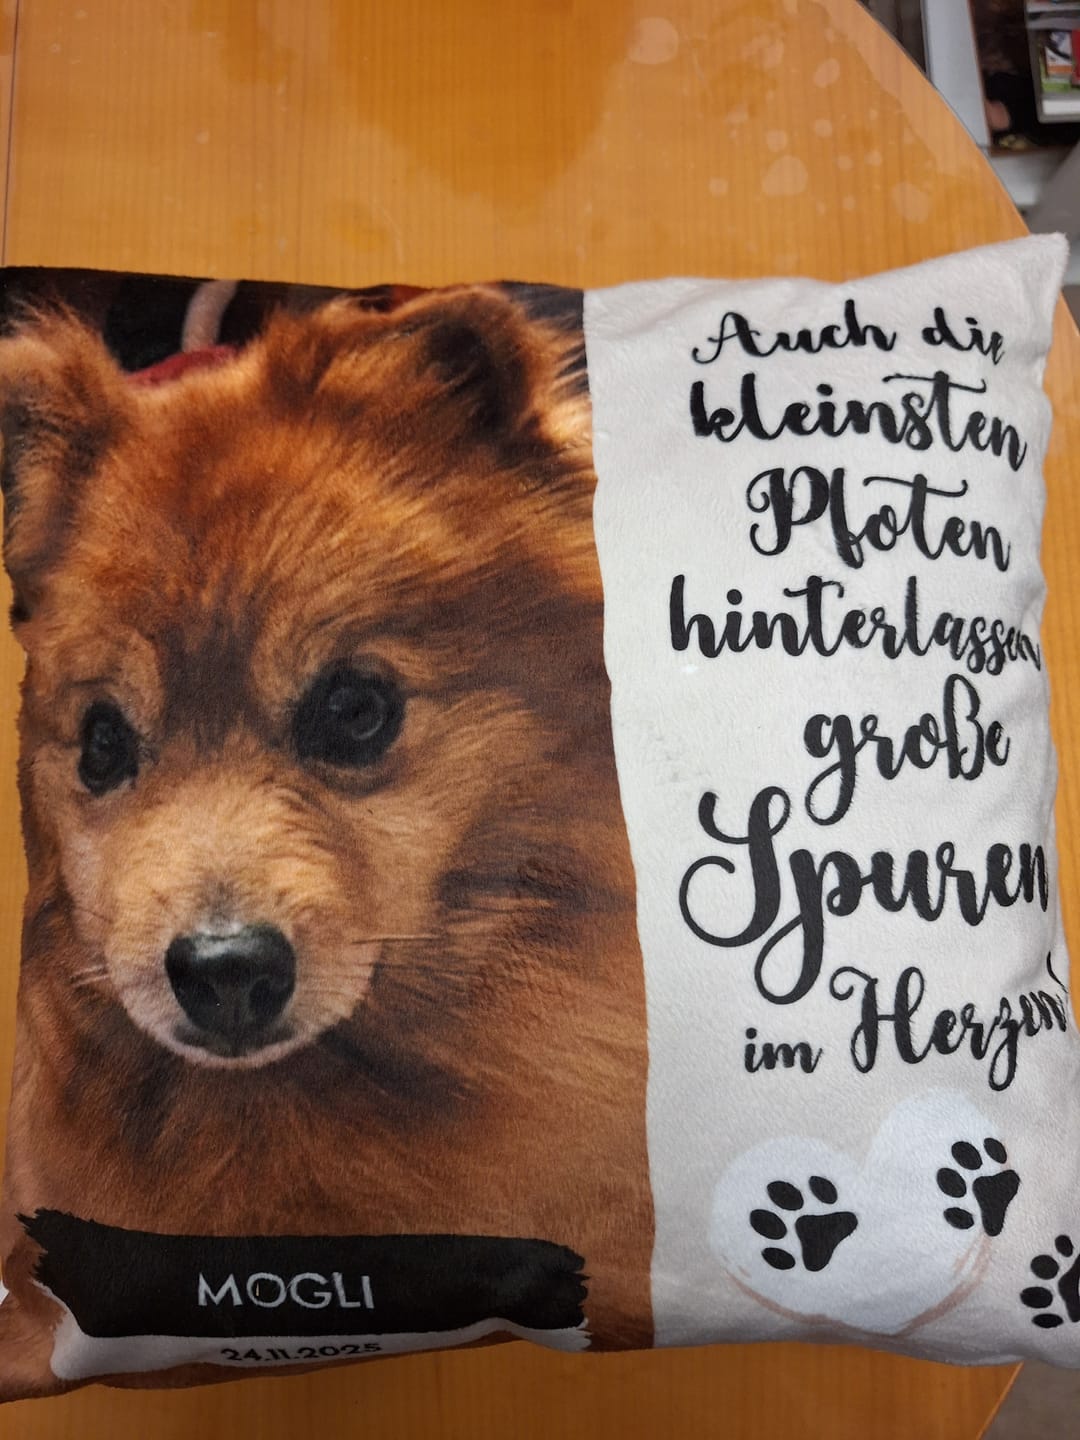 Auch die
kleinsten
Pfoten
hinterlassen
große
Spuren
im Herzen
MOGLI
24.11.2025